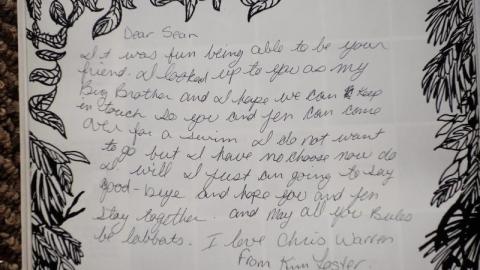 Dear Sean
It was fun being able to be your
friend. I looked up to you as my
Big Brother and I hope we can keep
in touch so you and Jen can come
over for a swim I do not want
to go but I have no choose now do
I will I just am going to say
good-buye and hope you and Jen
stay together. and May all you Rules
be labbats. I love Chris Warren
From Kim